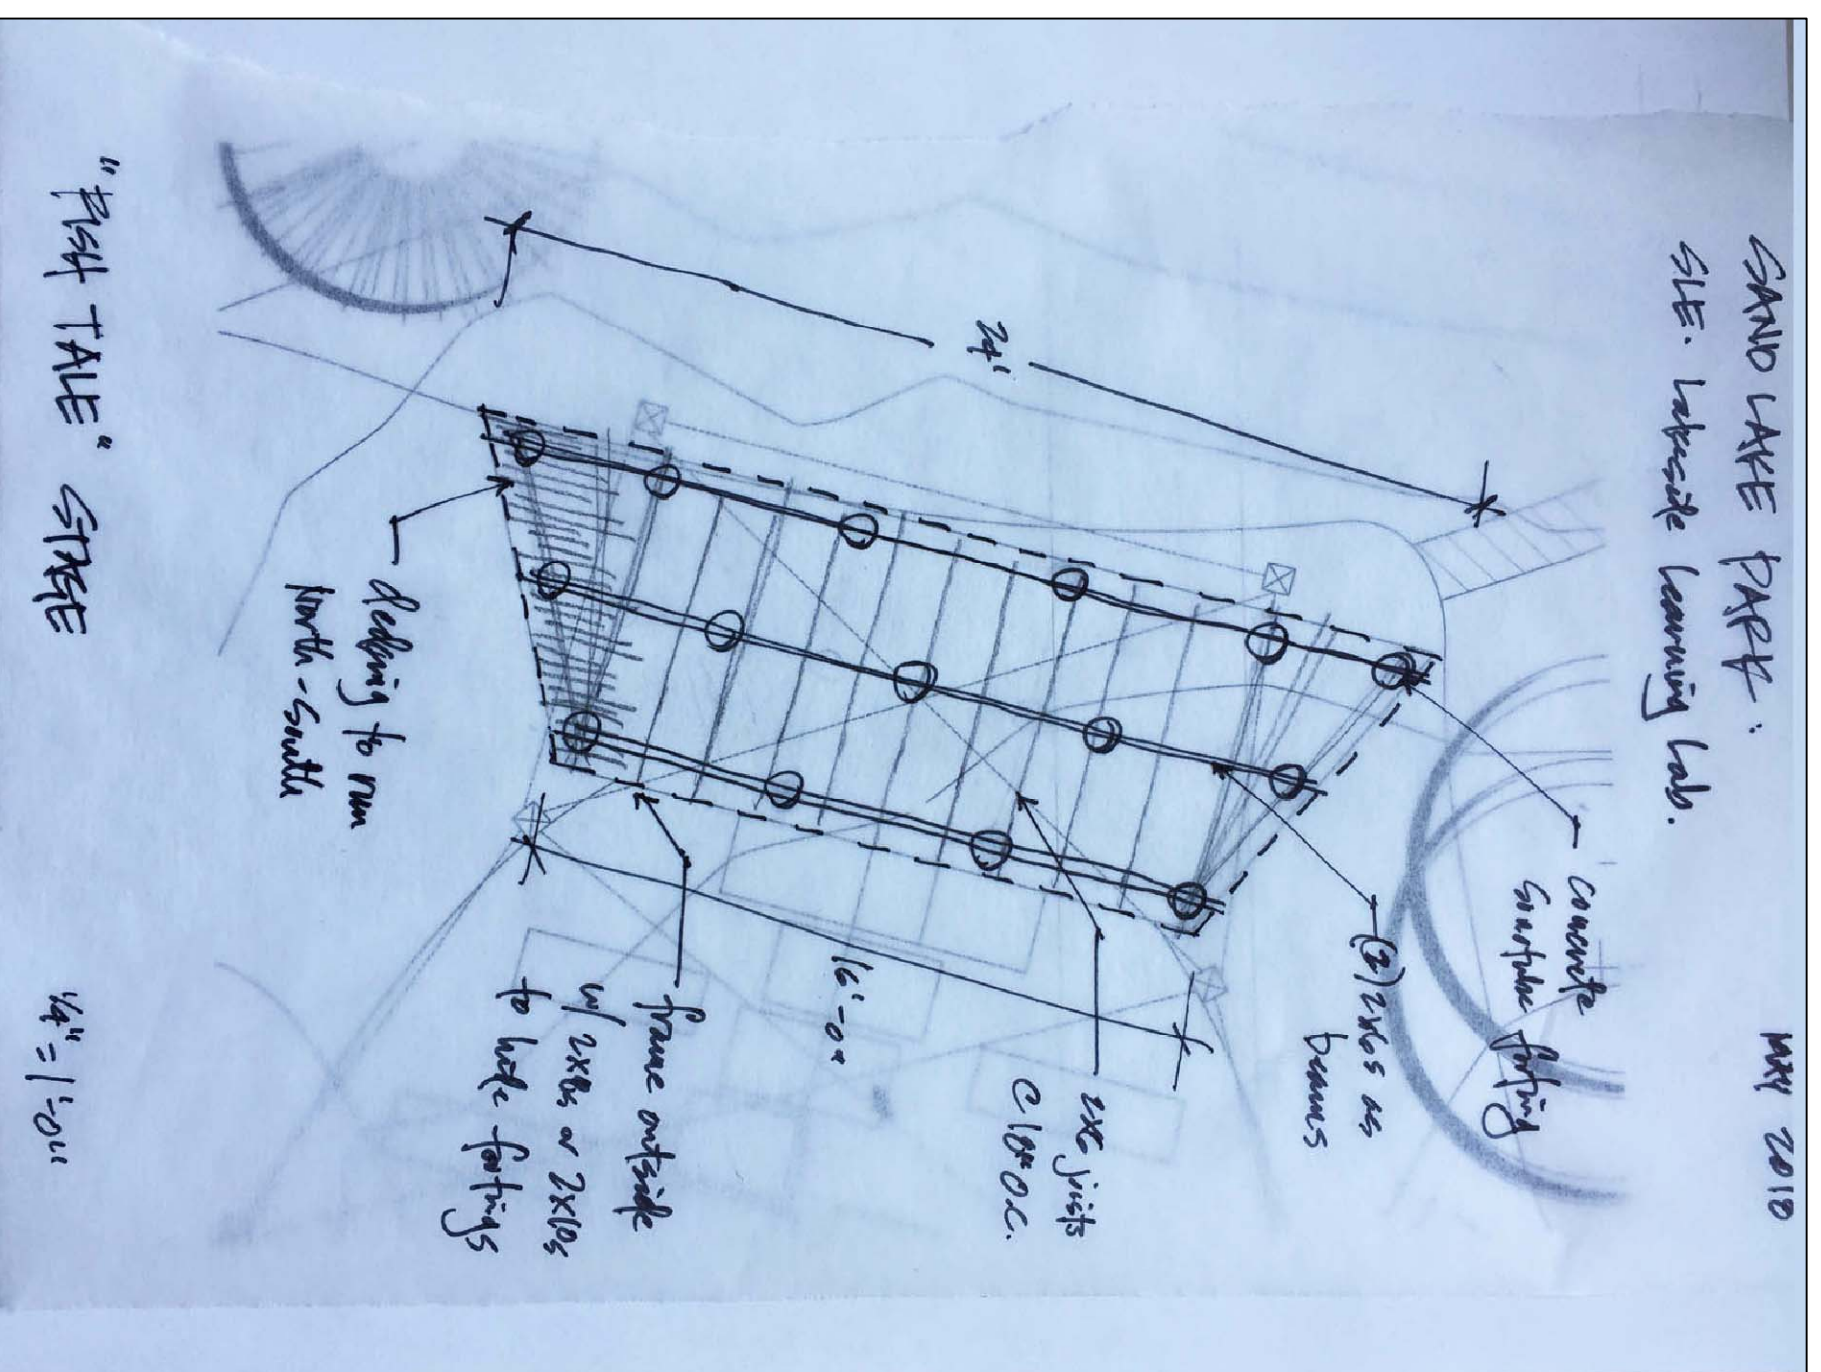 SAND LAKE PARK:
SLE. Lakeside Learning Lab.
MAY 2018
concrete
sonotube footing
(2) 2x6s as
beams
24'
2x6 joists
@ 18" O.C.
16'-0"
frame outside
w/ 2x8s or 2x10s
to hide footings
decking to run
North-South
"FISH TALE" STAGE
1/4" = 1'-0"